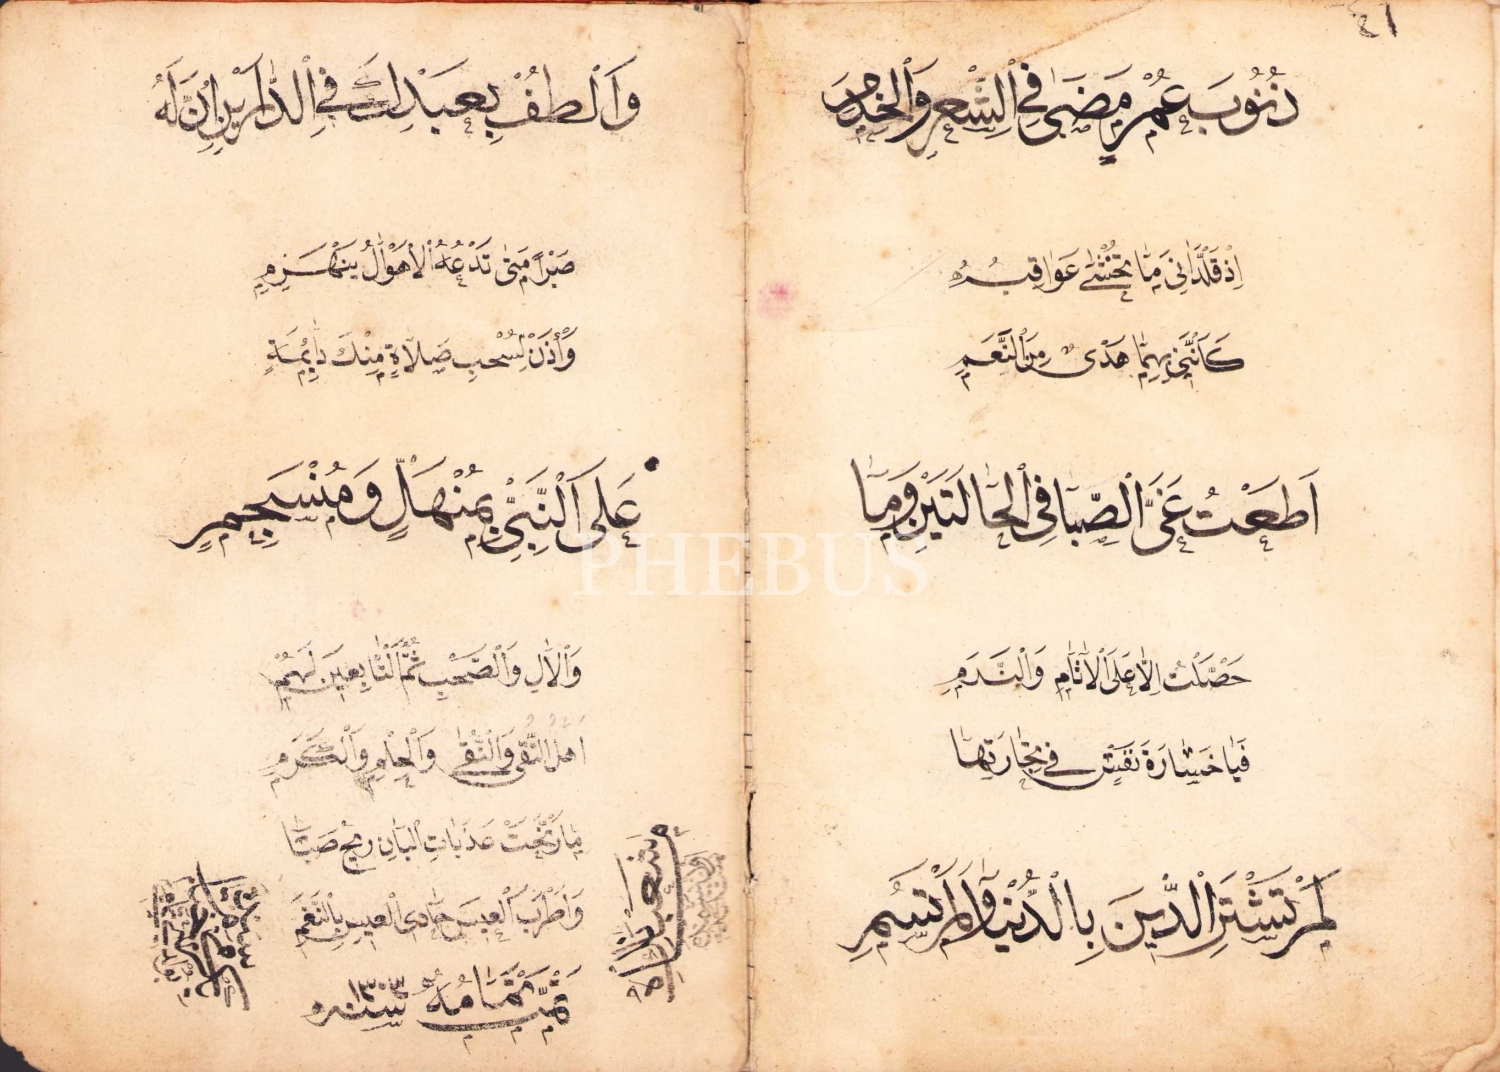 ٤١
ذُنُوبَ عُمْرٍ مَضَىٰ فِي الشِّعْرِ وَالْخِدَمِ
اِذْ قَلَّدَانِىَ مَا تُخْشٰى عَوَاقِبُهُ
كَاَنَّنِى بِهِمَا هَدْىٌ مِنَ النَّعَمِ
اَطَعْتُ غَىَّ الصِّبَا فِي الْحَالَتَيْنِ وَمَا
حَصَّلْتُ اِلَّا عَلَى الْاٰثَامِ وَالنَّدَمِ
فَيَا خَسَارَةَ نَفْسٍ فِي تِجَارَتِهَا
لَمْ تَشْتَرِ الدِّينَ بِالدُّنْيَا وَلَمْ تَسُمِ
وَالْطُفْ بِعَبْدِكَ فِي الدَّارَيْنِ اِنَّ لَهُ
صَبْرًا مَتٰى تَدْعُهُ الْاَهْوَالُ يَنْهَزِمِ
وَأْذَنْ لِسُحْبِ صَلَاةٍ مِنْكَ دَائِمَةٍ
عَلَى النَّبِىِّ بِمُنْهَلٍّ وَمُنْسَجِمِ
وَالْاٰلِ وَالصَّحْبِ ثُمَّ التَّابِعِينَ لَهُمْ
اَهْلُ التُّقٰى وَالنُّقٰى وَالْحِلْمِ وَالْكَرَمِ
مَا رَنَّحَتْ عَذَبَاتِ الْبَانِ رِيحُ صَبًا
وَاَطْرَبَ الْعِيسَ حَادِى الْعِيسِ بِالنَّغَمِ
تَمَّتْ تَمَامُهُ سنه ١٣٠٣
PHEBUS